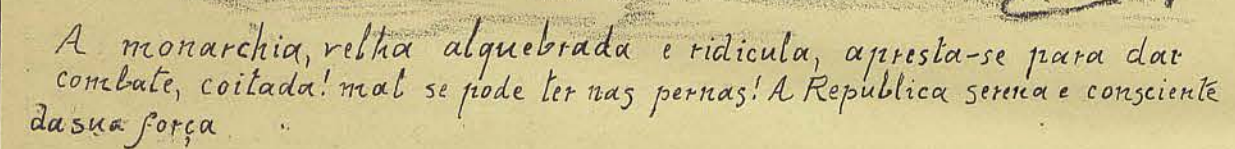 A monarchia, velha alquebrada e ridicula, apresta-se para dar
combate, coitada! mal se pode ter nas pernas! A Republica serena e consciente
da sua força